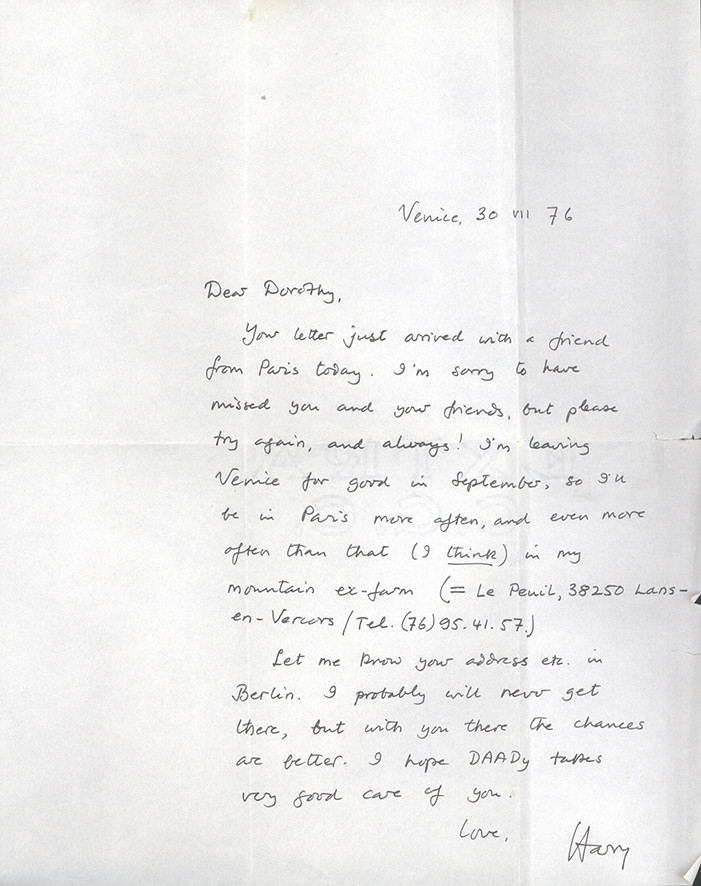 Venice, 30 VII 76
Dear Dorothy,
Your letter just arrived with a friend
from Paris today. I'm sorry to have
missed you and your friends, but please
try again, and always! I'm leaving
Venice for good in September, so I'll
be in Paris more often, and even more
often than that (I think) in my
mountain ex-farm (= Le Peuil, 38250 Lans-
en-Vercors / Tel. (76) 95.41.57.)
Let me know your address etc. in
Berlin. I probably will never get
there, but with you there the chances
are better. I hope DAADy takes
very good care of you.
Love,
Harry